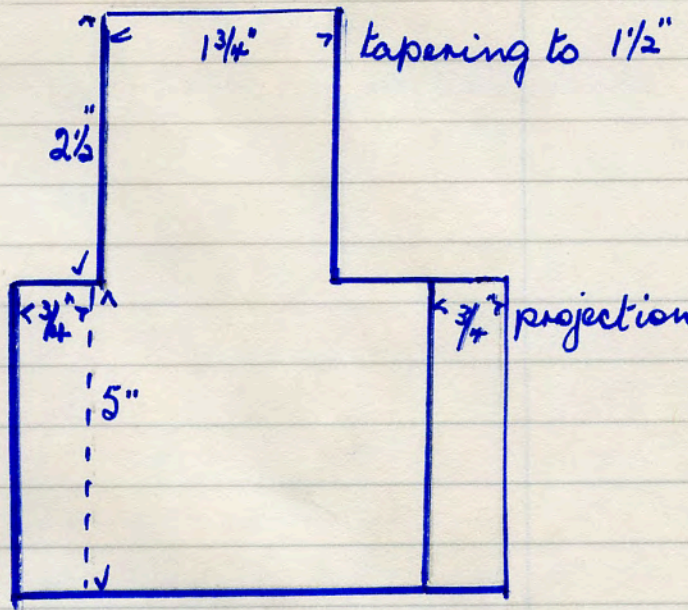 1 3/4" tapering to 1 1/2"
2 1/2"
3/4" 3/4" projection
5"